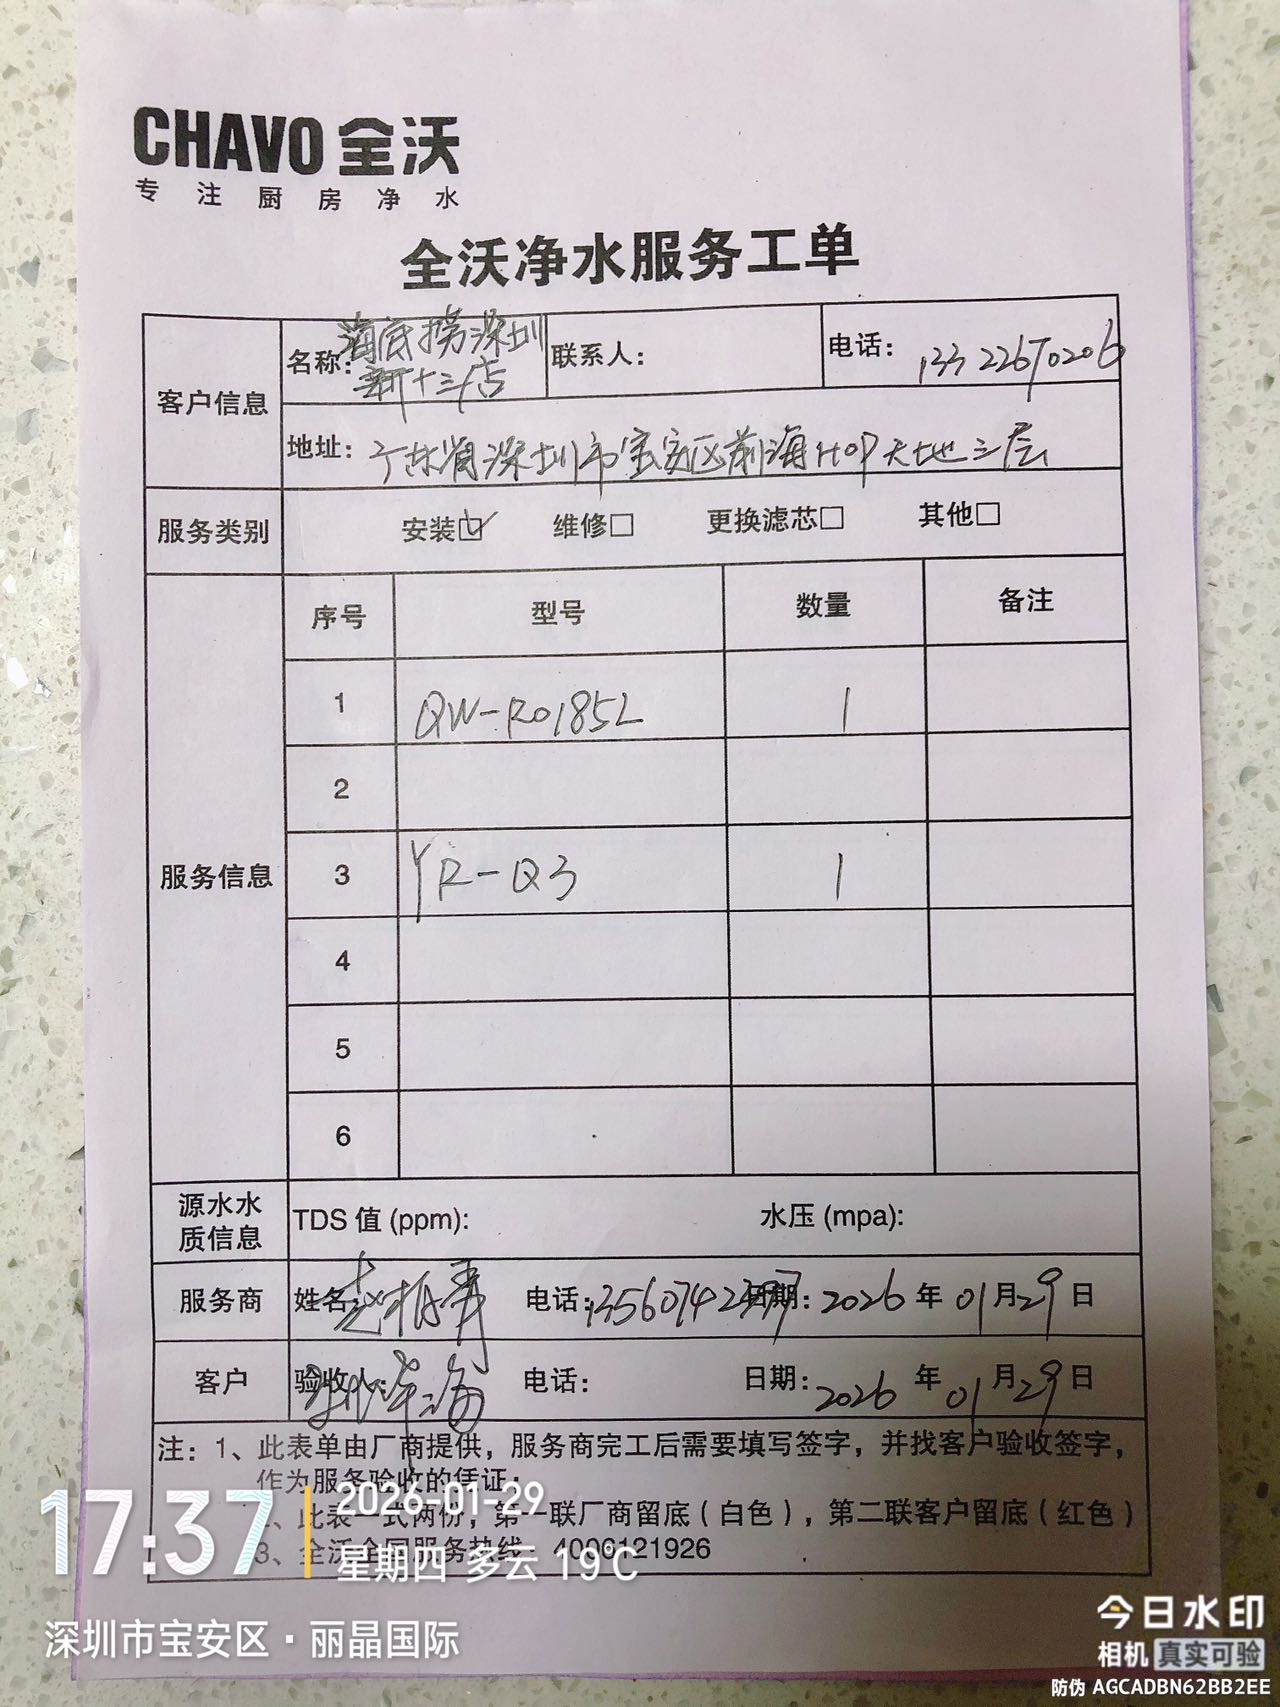 CHAVO 全沃
专注厨房净水
全沃净水服务工单
客户信息
名称: 海底捞深圳
新十三店
联系人:
电话: 13322670206
地址: 广东省深圳市宝安区前海HOP天地三层
服务类别 安装☑ 维修□ 更换滤芯□ 其他□
服务信息
序号 型号 数量 备注
1 QW-RO185L 1
2
3 YR-Q3 1
4
5
6
源水水
质信息
TDS 值 (ppm): 水压 (mpa):
服务商 姓名: 电话: 日期: 2026 年 01 月 29 日
客户 验收人: 电话: 日期: 2026 年 01 月 29 日
注: 1、此表单由厂商提供，服务商完工后需要填写签字，并找客户验收签字，
作为服务验收的凭证；
2、此表一式两份，第一联厂商留底（白色），第二联客户留底（红色）
3、全沃全国服务热线: 4006121926
17:37
2026-01-29
星期四 多云 19℃
深圳市宝安区·丽晶国际
今日水印
相机 真实可验
防伪 AGCADBN62BB2EE